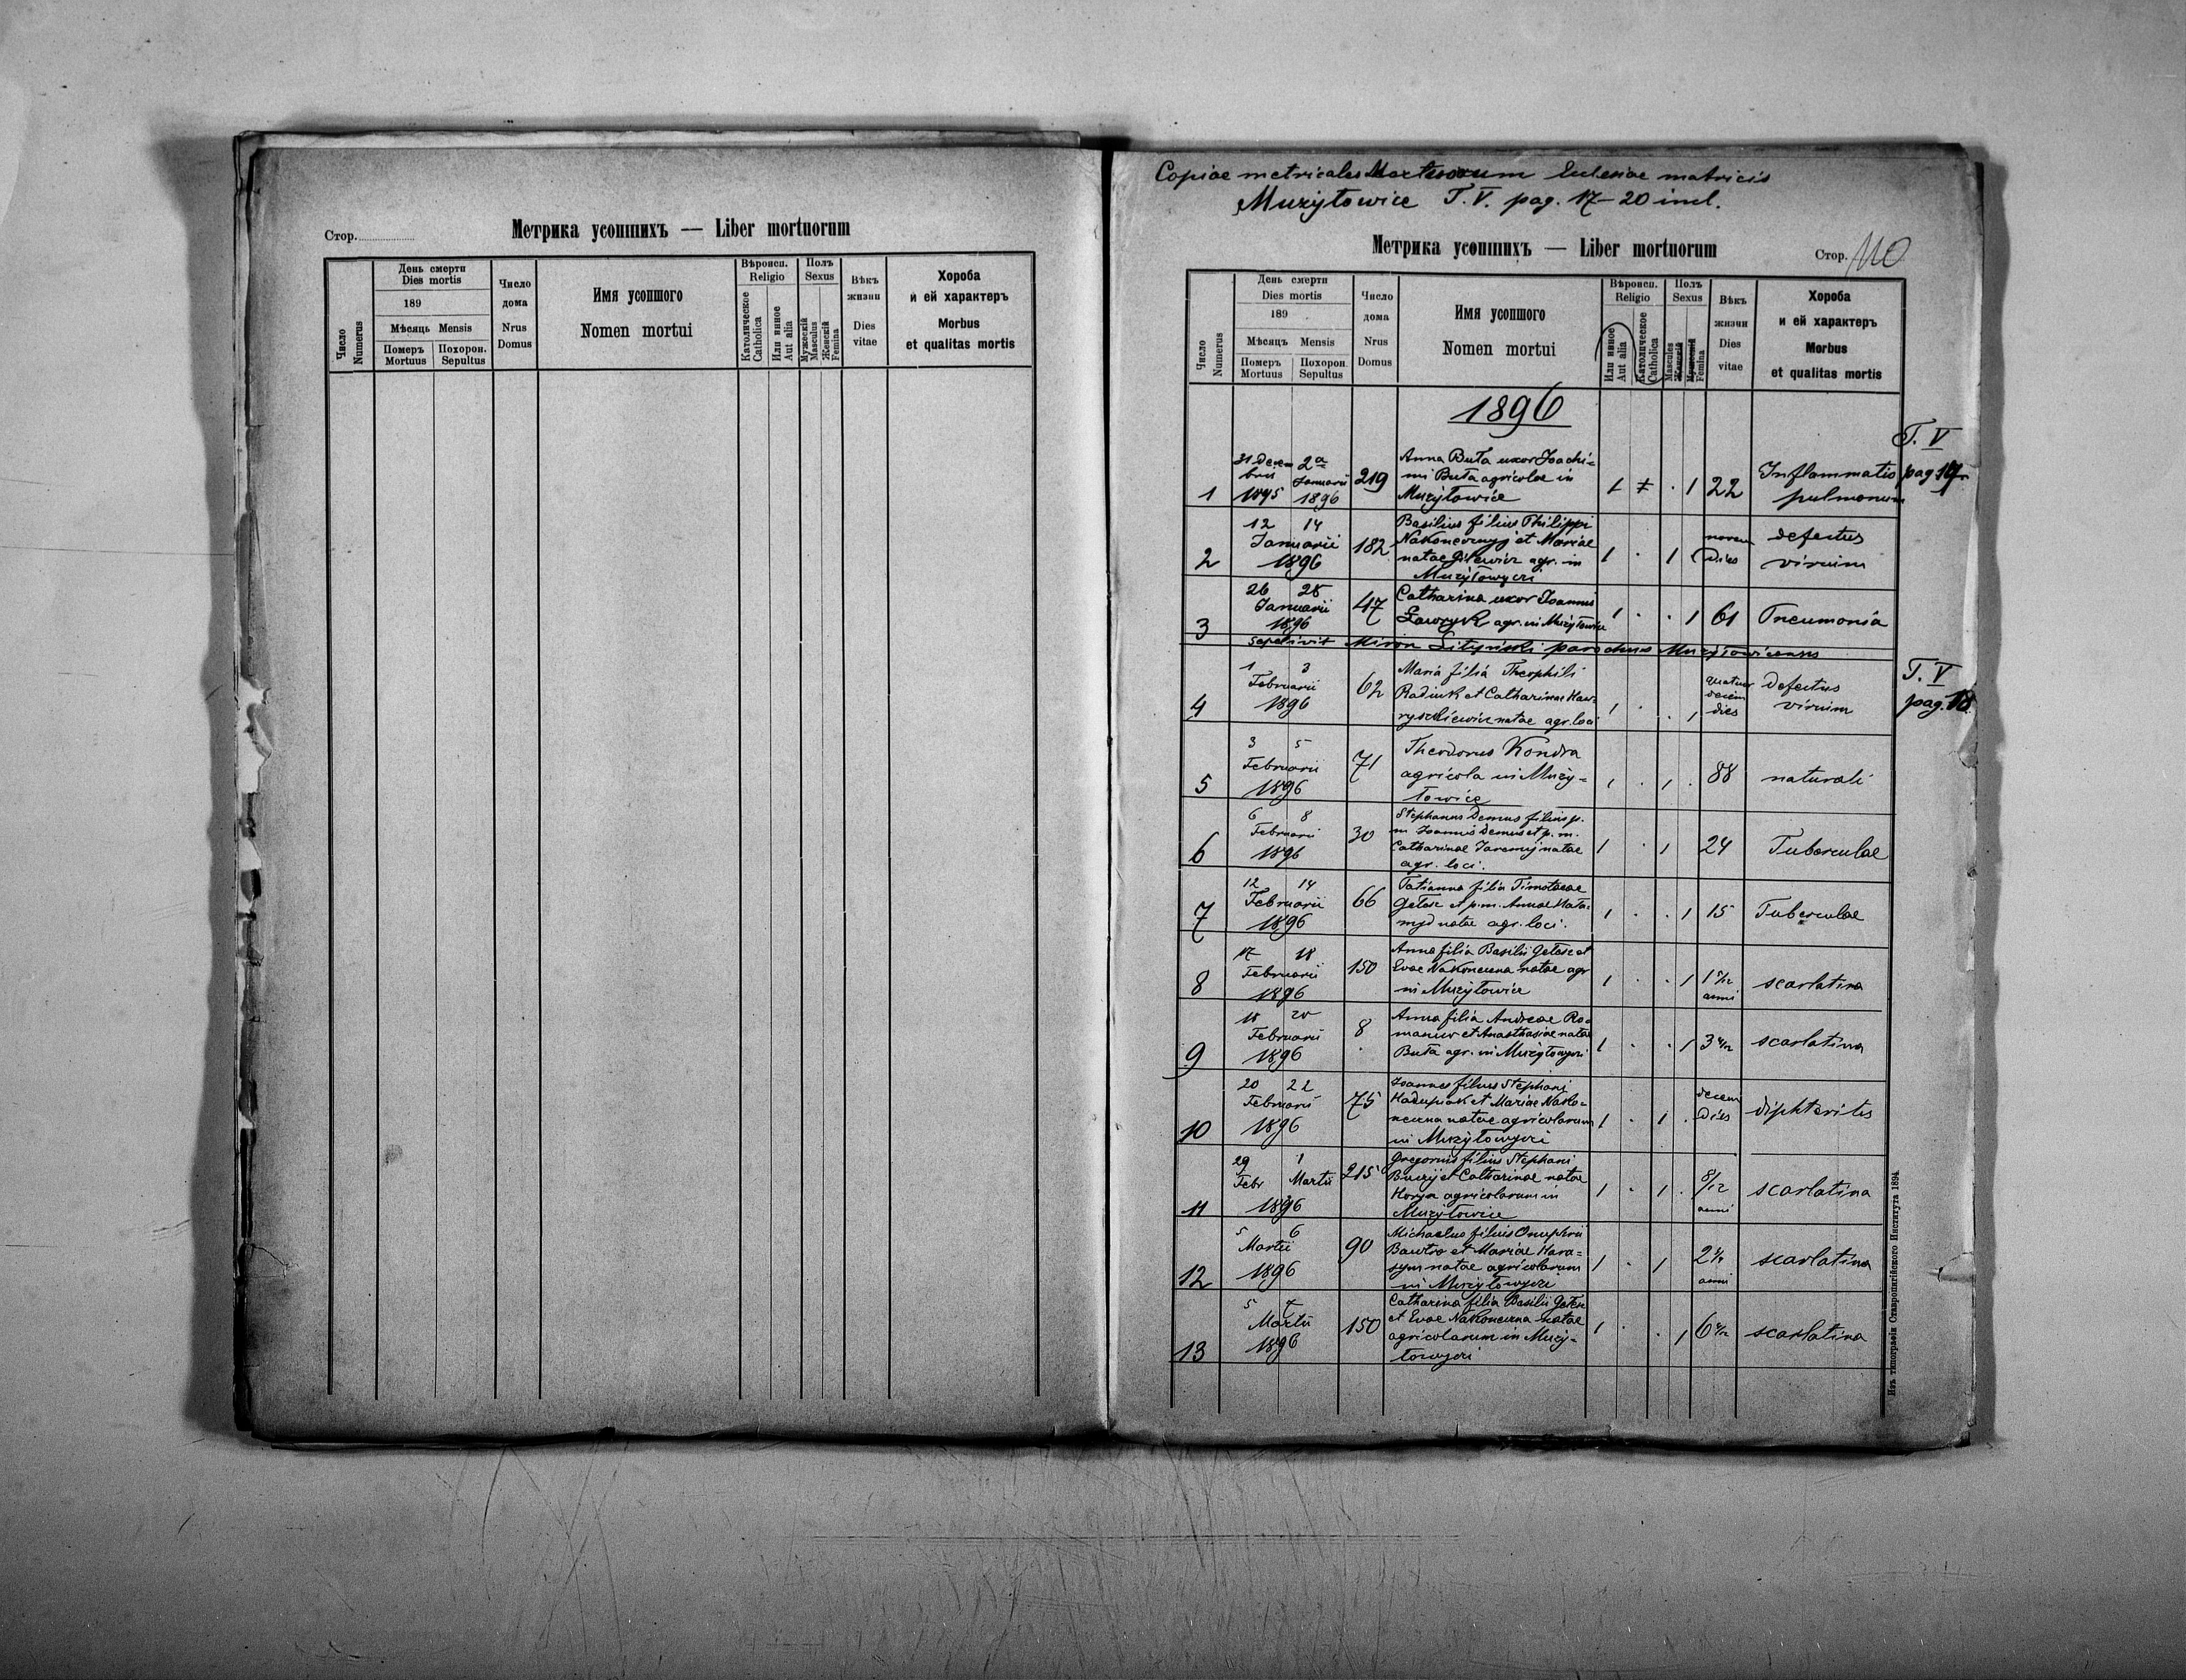 Стор.
Метрика усопшихъ — Liber mortuorum
Число
Numerus
День смерти
Dies mortis
189
Мѣсяць Mensis
Померъ
Mortuus
Похорон.
Sepultus
Число
дома
Nrus
Domus
Имя усопшого
Nomen mortui
Вѣроисп.
Religio
Католическое
Catholica
Или иное
Aut alia
Полъ
Sexus
Мужескій
Masculus
Женскій
Femina
Вѣкъ
жизни
Dies
vitae
Хороба
и ей характеръ
Morbus
et qualitas mortis
Copiae metricales Mortuorum Eclesiae matricis
Mużyłowice T. V. pag. 17–20 incl.
Метрика усопшихъ — Liber mortuorum
Стор. 110
Число
Numerus
День смерти
Dies mortis
189
Мѣсяць Mensis
Померъ
Mortuus
Похорон.
Sepultus
Число
дома
Nrus
Domus
Имя усопшого
Nomen mortui
Вѣроисп.
Religio
Или иное
Aut alia
Католическое
Catholica
Полъ
Sexus
Masculus
Женскій
Мужескій
Femina
Вѣкъ
жизни
Dies
vitae
Хороба
и ей характеръ
Morbus
et qualitas mortis
1896
T. V
pag 17
31 Decem 2a
bris Januarii
1 1895 1896
219
Anna Buta uxor Joachi=
mi Buta agricolae in
Mużyłowice
1 22
Inflammatio
pulmonum
12 14
Januarii
2 1896
182
Basilius filius Philippi
Nakoneczny et Mariae
natae Gilewicz agr. in
Mużyłowyczi
1 . 1
novem
dies
defectus
virium
26 28
Januarii
3 1896
47
Catharina uxor Joannis
agr. in Mużyłowice
1 . . 1 61 Pneumonia
sepelivit Miron parochus
T. V
pag. 18
1 3
Februarii
4 1896
62
Maria filia Theophili
Radiuk et Catharinae Haw=
natae agr. loci
1 . . 1
quatuor
decem
dies
defectus
virium
3 5
Februarii
5 1896
71
Theodorus Kondra
agricola in Muży=
łowice
1 . 1 . 88 naturali
6 8
Februarii
6 1896
30
Stephanus Demus filius p.
m. Joannis Demus et p. m.
Catharinae Jaremij natae
agr. loci.
1 . 1 24 Tuberculae
12 14
Februarii
7 1896
66
Tatianna filia Timotaeae
Getesz et p. m. Annae Hata=
myd natae agr. loci.
1 . . 1 15 Tuberculae
17 18
Februarii
8 1896
150
Anna filia Basilii Getesz et
Evae Nakoneczna natae agr
in Mużyłowice
1 . . 1
anni
scarlatina
18 20
Februarii
9 1896
8
Anna filia Andreae Ro=
maniw et Anasthasiae natae
Buta agr. in Mużyłowyczi
1 . . 1 scarlatina
20 22
Februarii
10 1896
75
Joannes filius Stephani
et Mariae Nako=
neczna natae agricolarum
in Mużyłowyczi
1 . 1 .
decem
dies
diphteritis
29 1
Febr Martii
11 1896
215
Gregorius filius Stephani
et Catharinae natae
agricolarum in
Mużyłowice
1 . 1 . 8/12
anni
scarlatina
5 6
Martii
12 1896
90
Michaelus filius Onuphrii
Bawtro et Mariae Hara=
sym natae agricolarum
in Mużyłowyczi
1 . 1
anni
scarlatina
5 7
Martii
13 1896
150
Catharina filia Basilii Getesz
et Evae Nakoneczna natae
agricolarum in Muży=
łowyczi
1 . . 1 scarlatina
Изъ типографіи Ставропигійского Института 1894